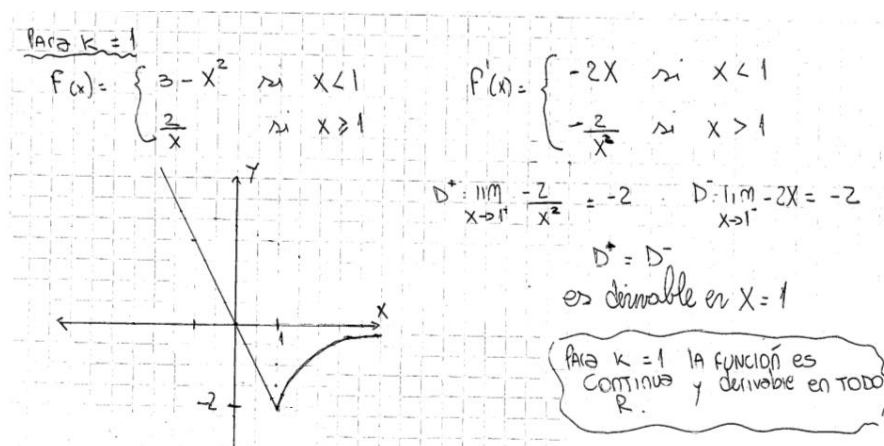 Para K = 1
F(x) = { 3 - x² si x < 1
2/x si x ≥ 1
F'(x) = { -2x si x < 1
-2/x² si x > 1
D⁺: lim x→1⁺ -2/x² = -2 D⁻: lim x→1⁻ -2x = -2
D⁺ = D⁻
es derivable en X = 1
Y
X
1
-2
Para K = 1 la función es
continua y derivable en TODO
R.